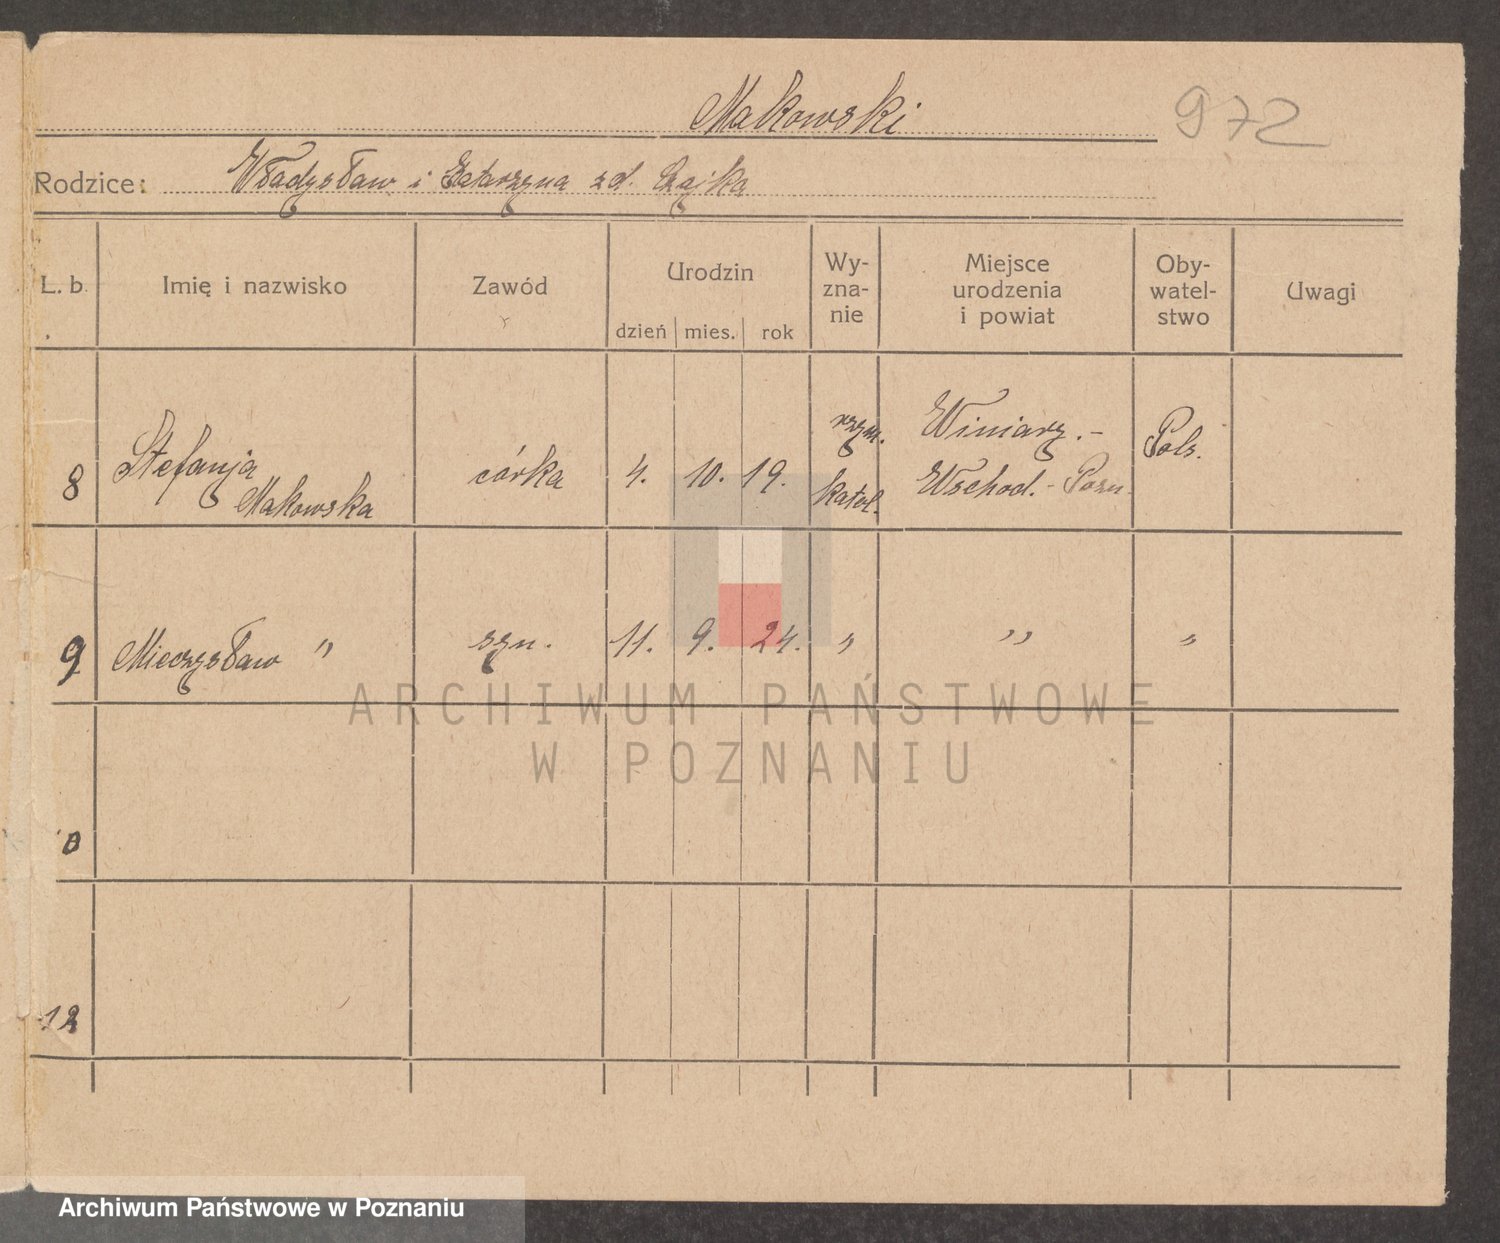 Makowski
972
Rodzice: Władysław i Katarzyna zd. Czajka
L. b.
Imię i nazwisko
Zawód
Urodzin
dzień mies. rok
Wy-
zna-
nie
Miejsce
urodzenia
i powiat
Oby-
watel-
stwo
Uwagi
8 Stefanja
Makowska
córka
4. 10. 19.
rzym.
katol.
Winiary.-
Wschod.- Pozn.
Pols.
9 Mieczysław " syn. 11. 9. 24. " " "
12
ARCHIWUM PAŃSTWOWE
W POZNANIU
Archiwum Państwowe w Poznaniu